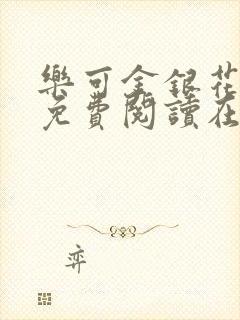 樂可金銀花
免費閱讀在
弈